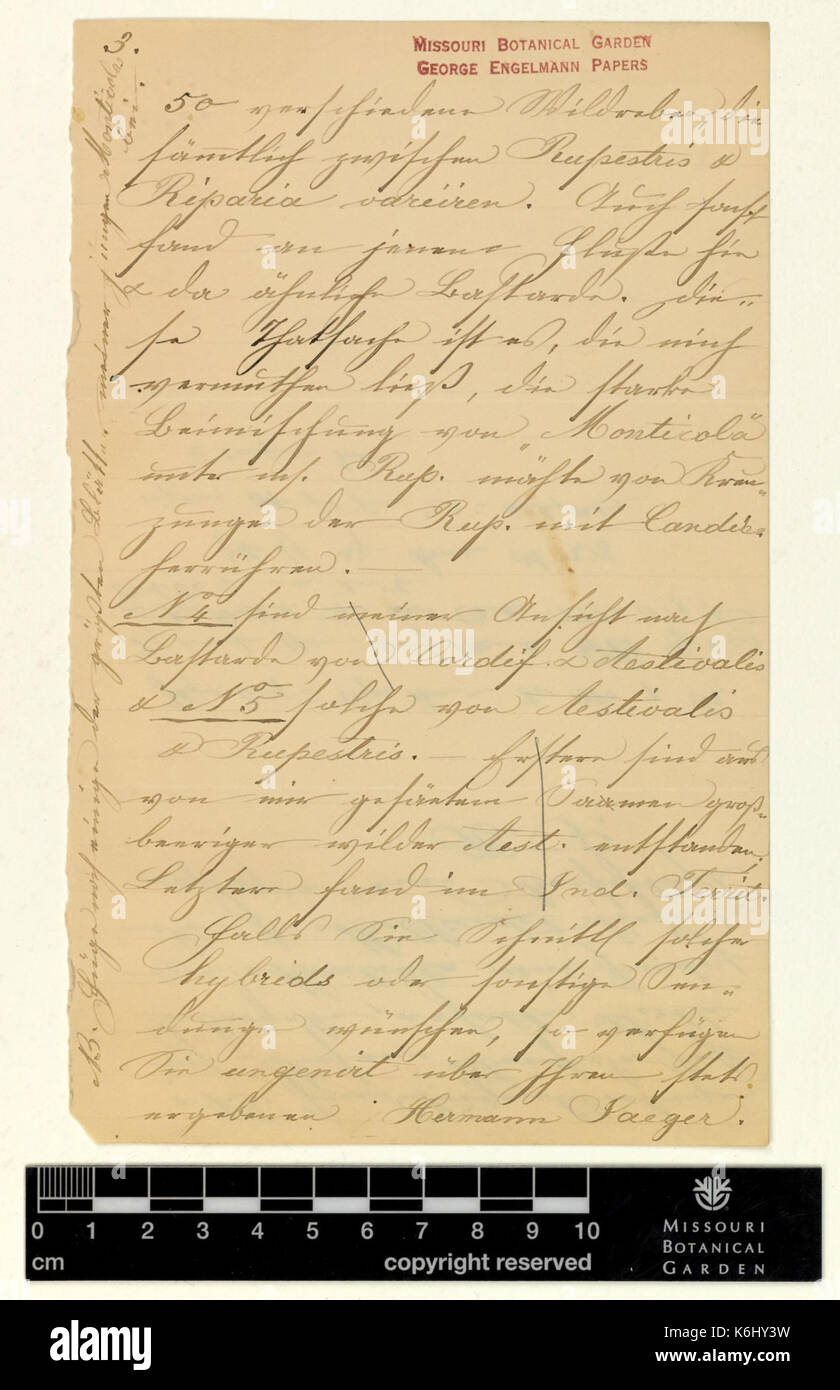 3.
MISSOURI BOTANICAL GARDEN
GEORGE ENGELMANN PAPERS
50 verschiedene Wildreben, die
sämmtlich zwischen Rupestris &
Riparia variiren. Auch sonst
fand an jenem Fluße hie
& da ähnliche Bastarde. Die-
se Thatsache ist es, die mich
vermuthen ließ, die starke
Beimischung von "Monticola"
unter Rup. möchte von Kreu-
zungen der Rup. mit Candic.
herrühren. —
No 4 sind meiner Ansicht nach
Bastarde von Cordif. & Aestivalis
& No 5 solche von Aestivalis
& Rupestris. — Erstere sind aus
von mir gesäetem Saamen groß-
beeriger wilder Aest. entstanden,
Letztere fand im Ind. Territ.
Falls Sie Schnittl solcher
hybrids oder sonstige Sen-
dungen wünschen, so verfügen
Sie ungenirt über Ihren stets
ergebenen Hermann Jaeger.
NB. Füge noch einige der größten Blätter meiner jungen Monticolas
bei.
0 1 2 3 4 5 6 7 8 9 10
cm
copyright reserved
MISSOURI
BOTANICAL
GARDEN
alamy
Image ID: K6HY3W
www.alamy.com